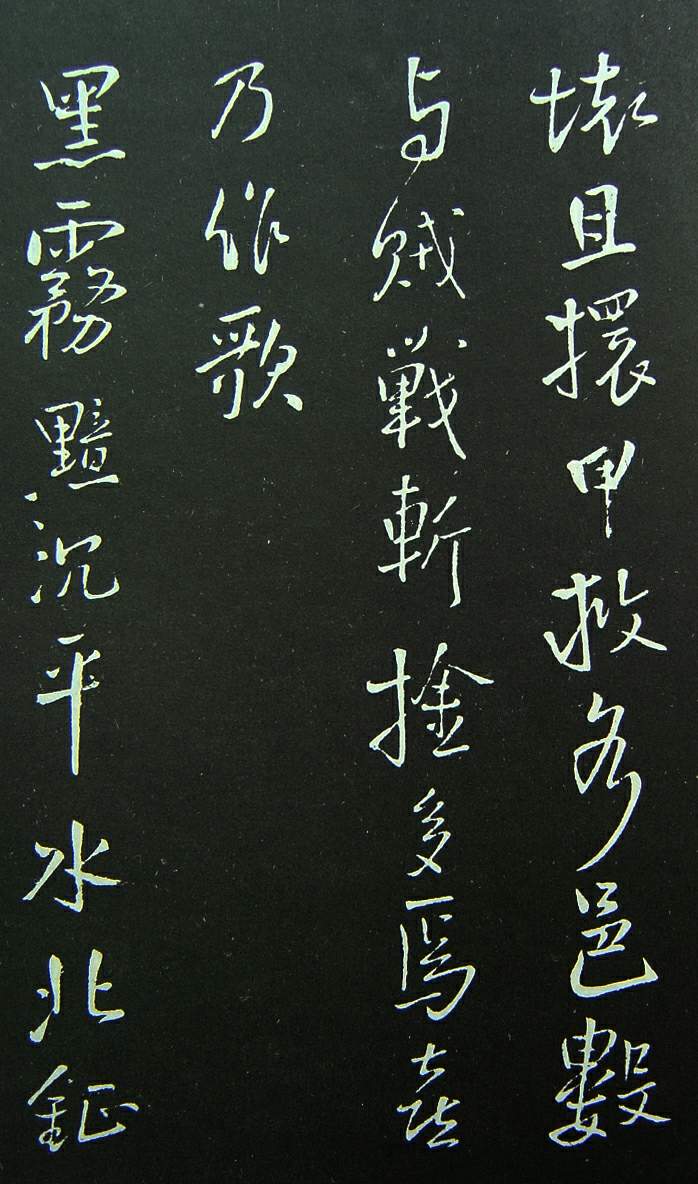 壞且擐甲救各邑數
与賊戰斬捦多焉喜
乃作歌
黑霧黯沉平水北鉦